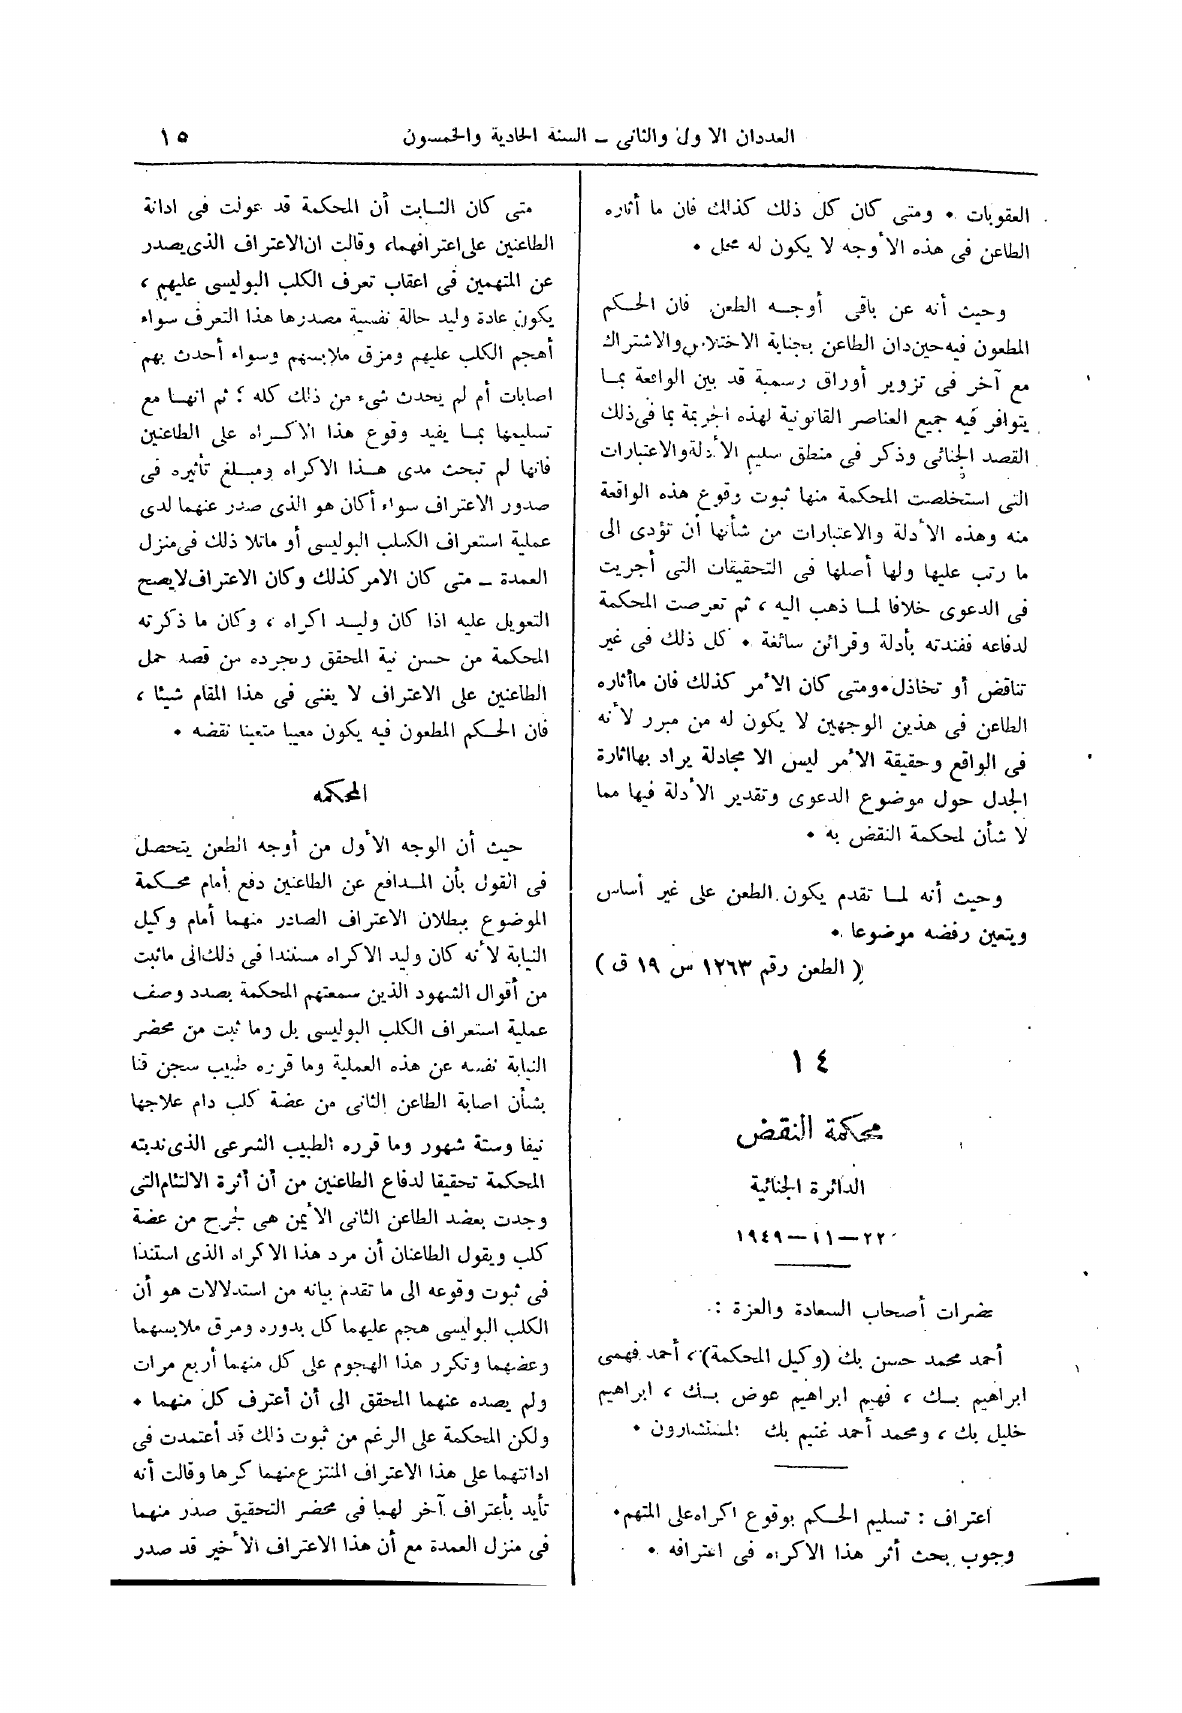 العددان الاول والثانى – السنة الحادية والخمسون
١٥
العقوبات ٠ ومتى كان كل ذلك كذلك فان ما أثاره
الطاعن فى هذه الأوجه لا يكون له محل ٠
وحيث أنه عن باقى أوجه الطعن فان الحكم
المطعون فيه حين دان الطاعن بجناية الاختلاس والاشتراك
مع آخر فى تزوير أوراق رسمية قد بين الواقعة بما
يتوافر فيه جميع العناصر القانونية لهذه الجريمة بما فى ذلك
القصد الجنائى وذكر فى منطق سليم الأدلة والاعتبارات
التى استخلصت المحكمة منها ثبوت وقوع هذه الواقعة
منه وهذه الأدلة والاعتبارات من شأنها أن تؤدى الى
ما رتب عليها ولها أصلها فى التحقيقات التى أجريت
فى الدعوى خلافا لما ذهب اليه ، ثم تعرضت المحكمة
لدفاعه ففندته بأدلة وقرائن سائغة ٠ كل ذلك فى غير
تناقض أو تخاذل ٠ ومتى كان الأمر كذلك فان ما أثاره
الطاعن فى هذين الوجهين لا يكون له من مبرر لأنه
فى الواقع وحقيقة الأمر ليس الا مجادلة يراد بها اثارة
الجدل حول موضوع الدعوى وتقدير الأدلة فيها مما
لا شأن لمحكمة النقض به ٠
وحيث أنه لما تقدم يكون الطعن على غير أساس
ويتعين رفضه موضوعا ٠
( الطعن رقم ١٢٦٣ س ١٩ ق )
١٤
محكمة النقض
الدائرة الجنائية
٢٢ – ١١ – ١٩٤٩
حضرات أصحاب السعادة والعزة :
أحمد محمد حسن بك (وكيل المحكمة) ، أحمد فهمى
ابراهيم بك ، فهيم ابراهيم عوض بك ، ابراهيم
خليل بك ، ومحمد أحمد غنيم بك المستشارون ٠
اعتراف : تسليم الحكم بوقوع اكراه على المتهم ٠
وجوب بحث أثر هذا الاكراه فى اعترافه ٠
متى كان الثابت أن المحكمة قد عولت فى ادانة
الطاعنين على اعترافهما، وقالت ان الاعتراف الذى يصدر
عن المتهمين فى اعقاب تعرف الكلب البوليسى عليهم ،
يكون عادة وليد حالة نفسية مصدرها هذا التعرف سواء
أهجم الكلب عليهم ومزق ملابسهم وسواء أحدث بهم
اصابات أم لم يحدث شىء من ذلك كله ؛ ثم انها مع
تسليمها بما يفيد وقوع هذا الاكراه على الطاعنين
فانها لم تبحث مدى هذا الاكراه ومبلغ تأثيره فى
صدور الاعتراف سواء أكان هو الذى صدر عنهما لدى
عملية استعراف الكلب البوليسى أو ماتلا ذلك فى منزل
العمدة – متى كان الامر كذلك وكان الاعتراف لا يصح
التعويل عليه اذا كان وليد اكراه ، وكان ما ذكرته
المحكمة من حسن نية المحقق وتجرده من قصد حمل
الطاعنين على الاعتراف لا يغنى فى هذا المقام شيئا ،
فان الحكم المطعون فيه يكون معيبا متعينا نقضه ٠
المحكمه
حيث أن الوجه الأول من أوجه الطعن يتحصل
فى القول بأن المدافع عن الطاعنين دفع أمام محكمة
الموضوع ببطلان الاعتراف الصادر منهما أمام وكيل
النيابة لأنه كان وليد الاكراه مستندا فى ذلك الى ماثبت
من أقوال الشهود الذين سمعتهم المحكمة بصدد وصف
عملية استعراف الكلب البوليسى بل وما ثبت من محضر
النيابة نفسه عن هذه العملية وما قرره طبيب سجن قنا
بشأن اصابة الطاعن الثانى من عضة كلب دام علاجها
نيفا وستة شهور وما قرره الطبيب الشرعى الذى ندبته
المحكمة تحقيقا لدفاع الطاعنين من أن أثرة الالتئام التى
وجدت بعضد الطاعن الثانى الأيمن هى لجرح من عضة
كلب ويقول الطاعنان أن مرد هذا الاكراه الذى استندا
فى ثبوت وقوعه الى ما تقدم بيانه من استدلالات هو أن
الكلب البوليسى هجم عليهما كل بدوره ومرق ملابسهما
وعضهما وتكرر هذا الهجوم على كل منهما أربع مرات
ولم يصده عنهما المحقق الى أن أعترف كل منهما ٠
ولكن المحكمة على الرغم من ثبوت ذلك قد أعتمدت فى
ادانتهما على هذا الاعتراف المنتزع منهما كرها وقالت أنه
تأيد بأعتراف آخر لهما فى محضر التحقيق صدر منهما
فى منزل العمدة مع أن هذا الاعتراف الأخير قد صدر